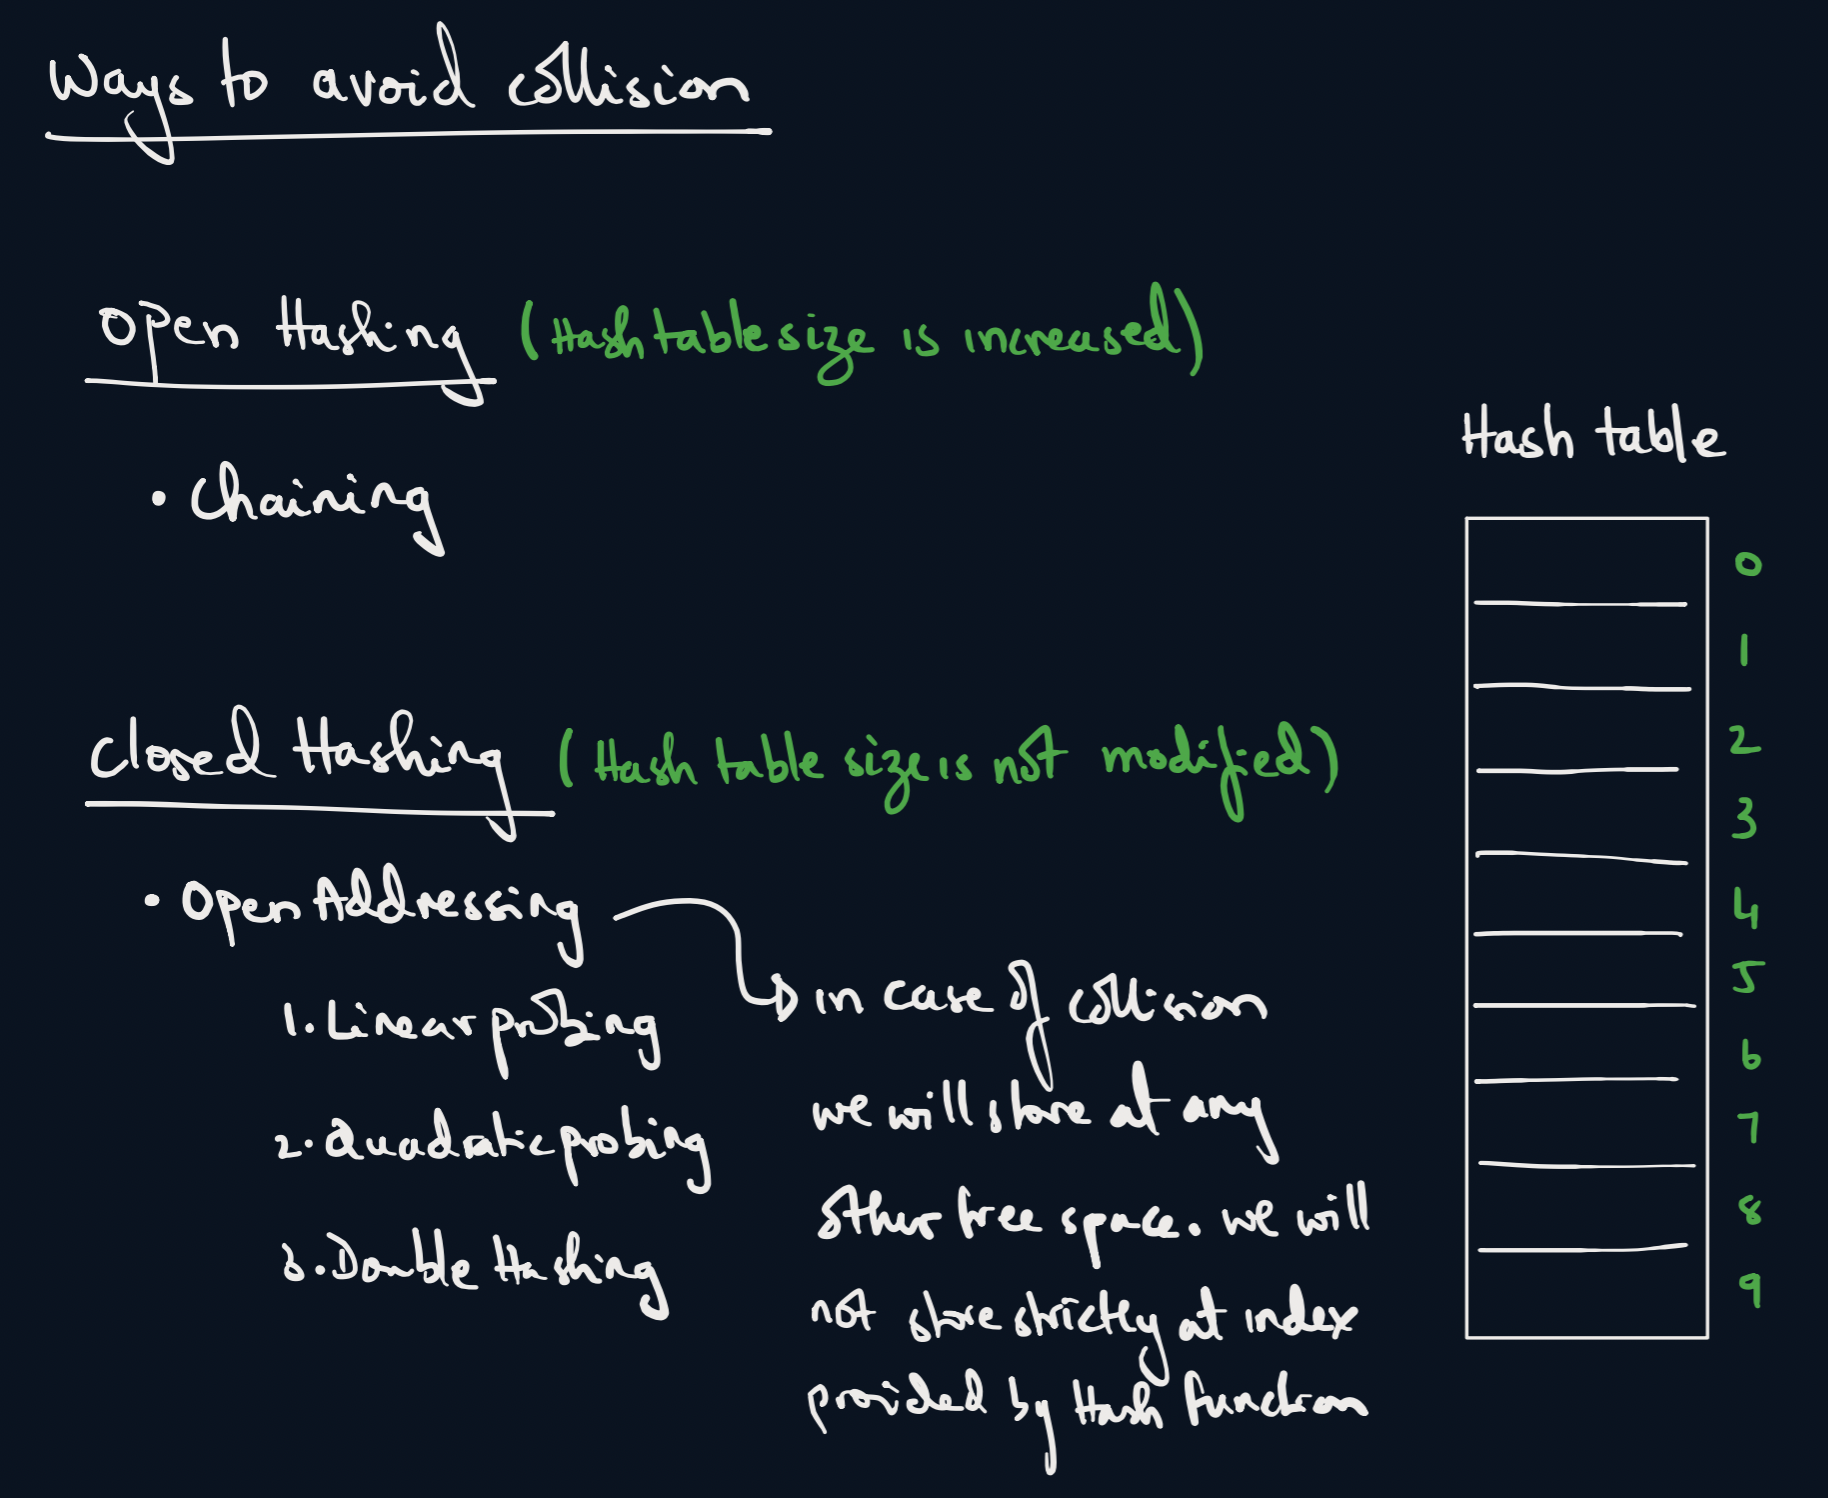 Ways to avoid collision
Open Hashing (Hash table size is increased)
• Chaining
Closed Hashing (Hash table size is not modified)
• Open Addressing
1. Linear probing
2. Quadratic probing
3. Double Hashing
in case of collision
we will store at any
other free space. we will
not store strictly at index
provided by Hash function
Hash table
0
1
2
3
4
5
6
7
8
9